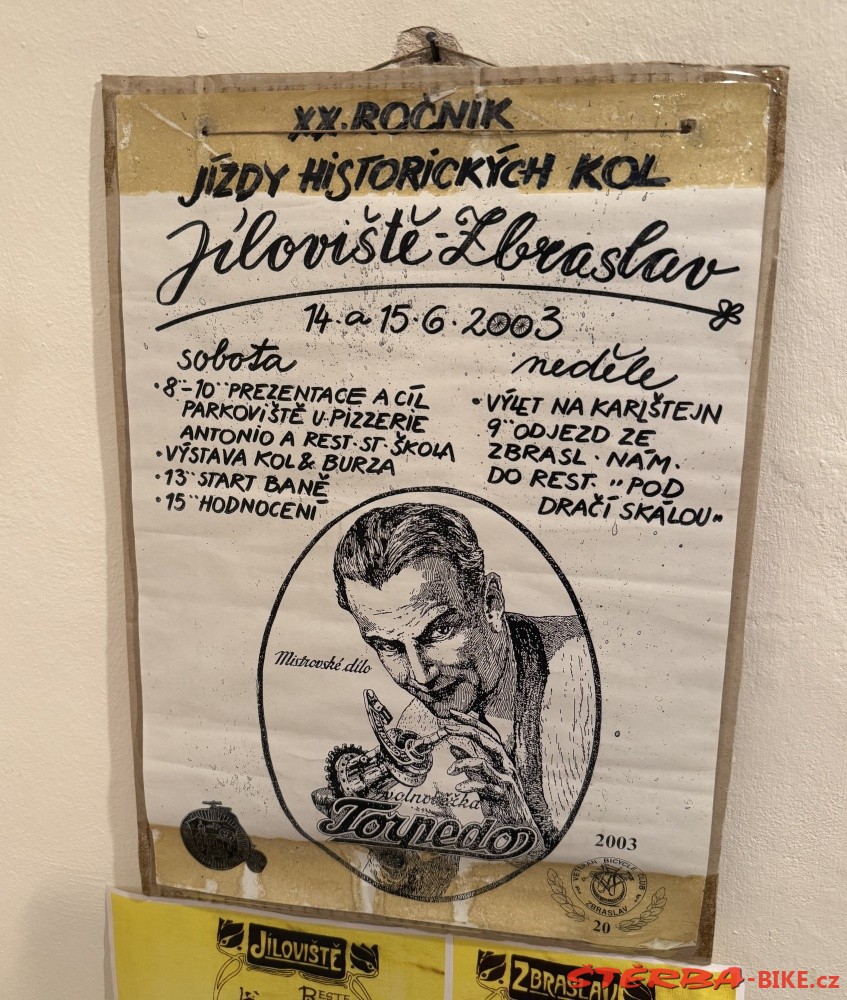 XX. ROČNÍK
JÍZDY HISTORICKÝCH KOL
Jíloviště-Zbraslav
14. a 15. 6. 2003
sobota
• 8°°-10°° PREZENTACE A CÍL
PARKOVIŠTĚ U PIZZERIE
ANTONIO A REST. ST. ŠKOLA
• VÝSTAVA KOL & BURZA
• 13°° START BANĚ
• 15°° HODNOCENÍ
neděle
• VÝLET NA KARLŠTEJN
9°° ODJEZD ZE
ZBRASL. NÁM.
DO REST. "POD
DRAČÍ SKÁLOU"
Mistrovské dílo
volnoběžka
Torpedo
2003
VETERAN BICYCLE CLUB
ZBRASLAV
20
JÍLOVIŠTĚ
ZBRASLAV
BESTE
ŠTĚRBA-BIKE.cz